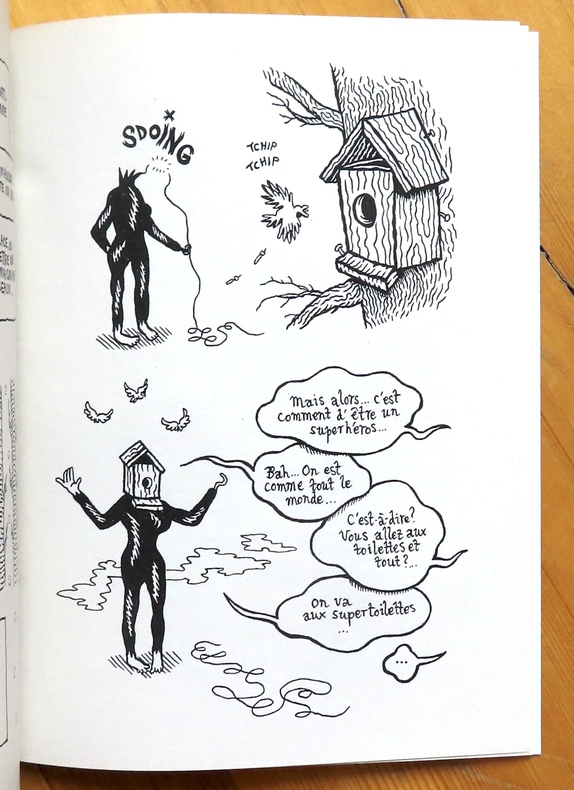 SDOING
TCHIP
TCHIP
Mais alors... c'est
comment d'être un
superhéros...
Bah... On est
comme tout le
monde...
C'est-à-dire?
Vous allez aux
toilettes et
tout?...
On va
aux supertoilettes
...
...